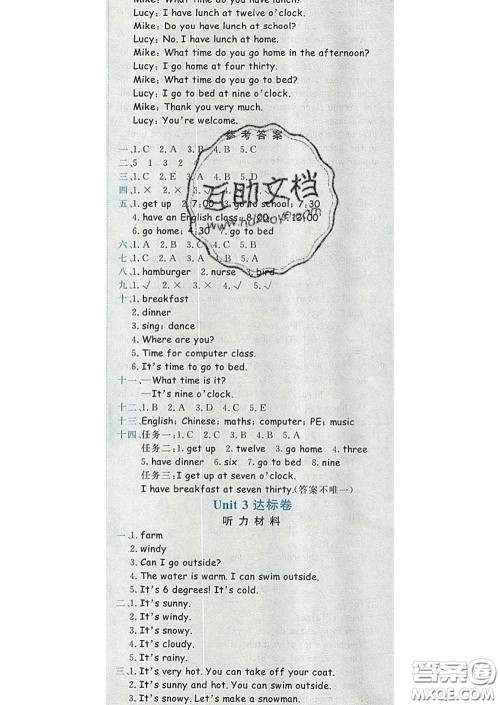 Lucy: I have lunch at twelve o'clock.
Mike: Do you have lunch at school?
Lucy: No. I have lunch at home.
Mike: What time do you go home in the afternoon?
Lucy: I go home at four thirty.
Mike: What time do you go to bed?
Lucy: I go to bed at nine o'clock.
Mike: Thank you very much.
Lucy: You're welcome.
参考答案
一、1. C 2. A 3. A 4. B 5. C
二、5 1 3 2
三、1. C 2. A 3. B 4. D 5. E
四、1. × 2. ×
五、1. get up 2. 7:00 3. go to school; 7:30
4. have an English class; 8:00 12:00
6. go home; 4:30 7. go to bed
六、1. A 2. B 3. C 4. C 5. B
七、1. C 2. C 3. A 4. B 5. A
八、1. hamburger 2. nurse 3. bird
九、1. √ 2. × 3. × 4. √ 5. √
十、1. breakfast
2. dinner
3. sing; dance
4. Where are you?
5. Time for computer class.
6. It's time to go to bed.
十一、—What time is it?
—It's nine o'clock.
十二、1. B 2. A 3. D 4. C 5. E
十三、English; Chinese; maths; computer; PE; music
十四、任务一:1. C 2. B 3. C 4. B 5. A
任务二:1. get up 2. twelve 3. go home 4. three
5. have dinner 6. six 7. go to bed 8. nine
任务三:I get up at seven o'clock.
I have breakfast at seven thirty.(答案不唯一)
Unit 3 达标卷
听力材料
一、1. farm
2. windy
3. Can I go outside?
4. The water is warm. I can swim outside.
5. It's 6 degrees! It's cold.
二、1. It's sunny.
2. It's windy.
3. It's snowy.
4. It's cloudy.
5. It's rainy.
三、1. It's very hot. You can take off your coat.
2. It's sunny and hot. You can swim outside.
3. It's snowy. Let's make a snowman.
互助文档
答案圈
MXQE.COM